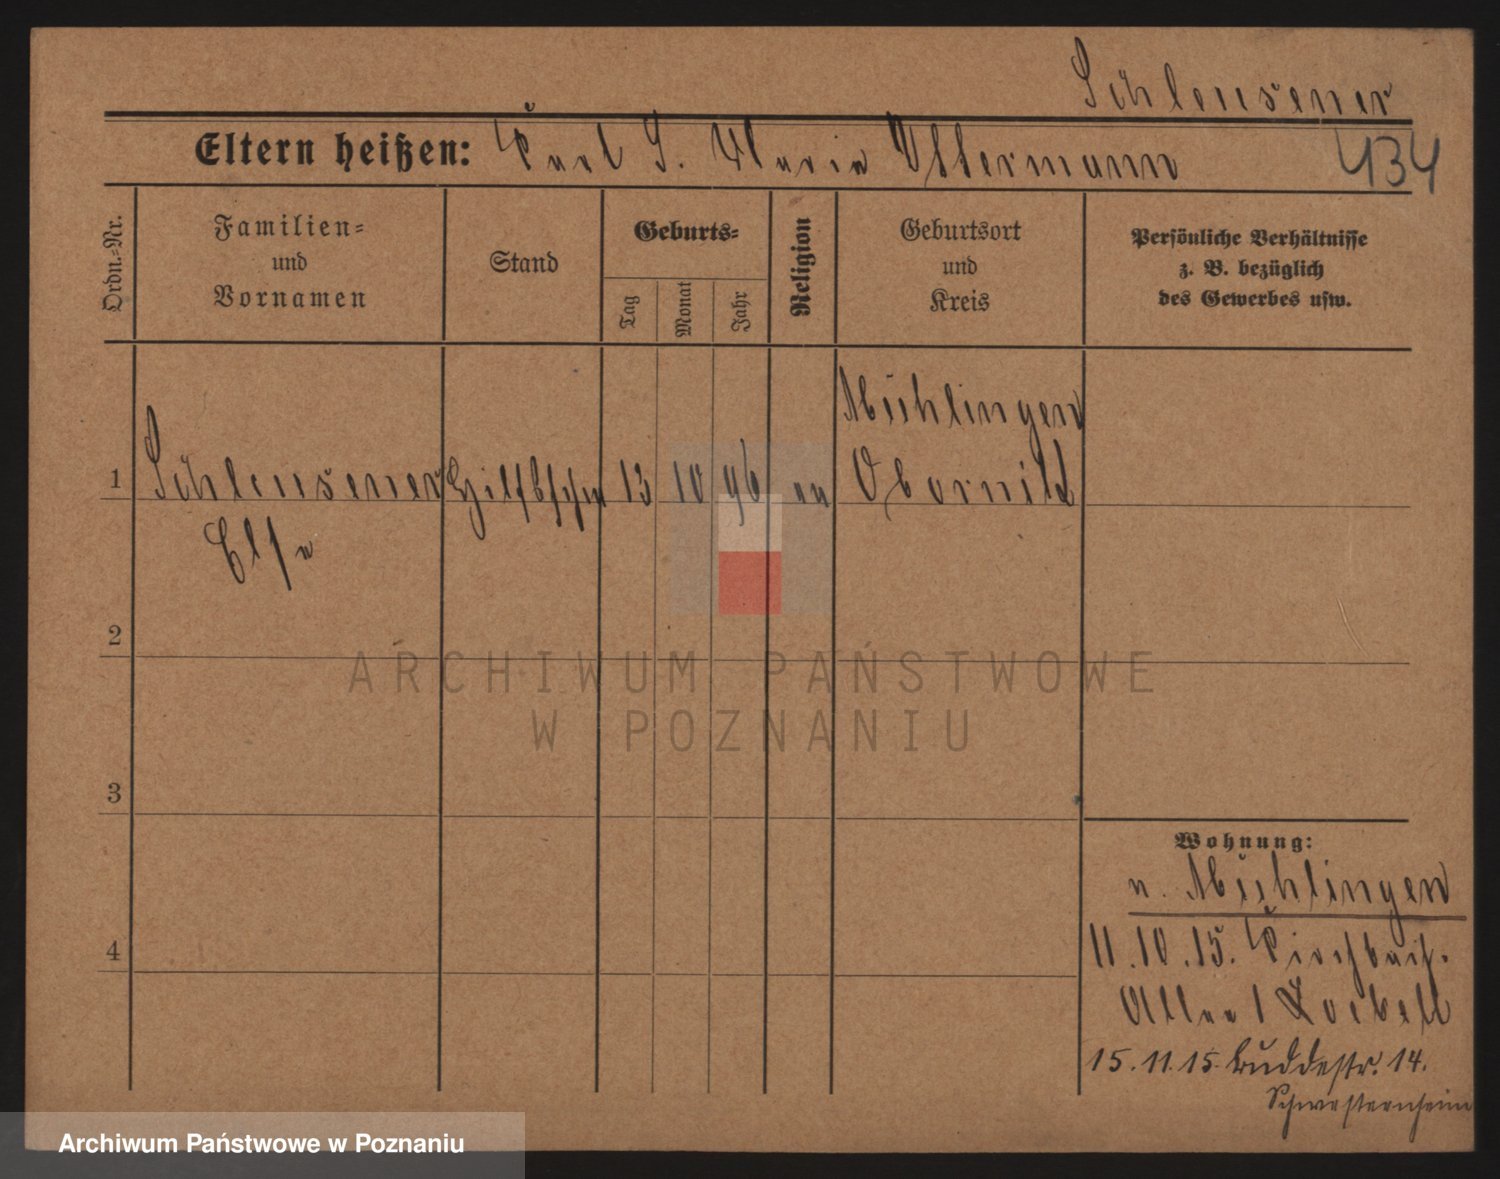 Schleusener
Eltern heißen: Karl S. Maria Ostermann 434
Ordn.-Nr.
Familien-
und
Vornamen
Stand
Geburts-
Tag
Monat
Jahr
Religion
Geburtsort
und
Kreis
Persönliche Verhältnisse
z. B. bezüglich
des Gewerbes usw.
Mühlingen
1 Schleusener Hilfsschw 13 10 96 ev Obornik
Else
2
3
4
Wohnung:
v. Mühlingen
11.10.15. Kirchbach-
Allee 1 Zoebelt
15.11.15. Buddestr. 14.
Schwesternheim
ARCHIWUM PAŃSTWOWE
W POZNANIU
Archiwum Państwowe w Poznaniu